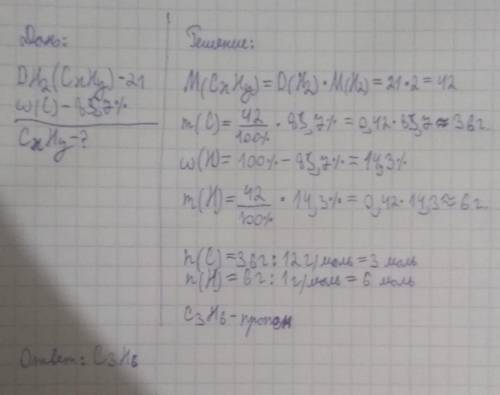 Дано:
DH₂(CxHy)-21
w(C)-85,7%
CxHy-?
Решение:
M(CxHy)=D(H₂)·M(H₂)=21·2=42
m(C)=42/100%·85,7%=0,42·85,7≈36г
w(H)=100%-85,7%=14,3%
m(H)=42/100%·14,3%=0,42·14,3≈6г
n(C)=36г:12г/моль=3 моль
n(H)=6г:1г/моль=6 моль
C₃H₆-пропен
Ответ: C₃H₆